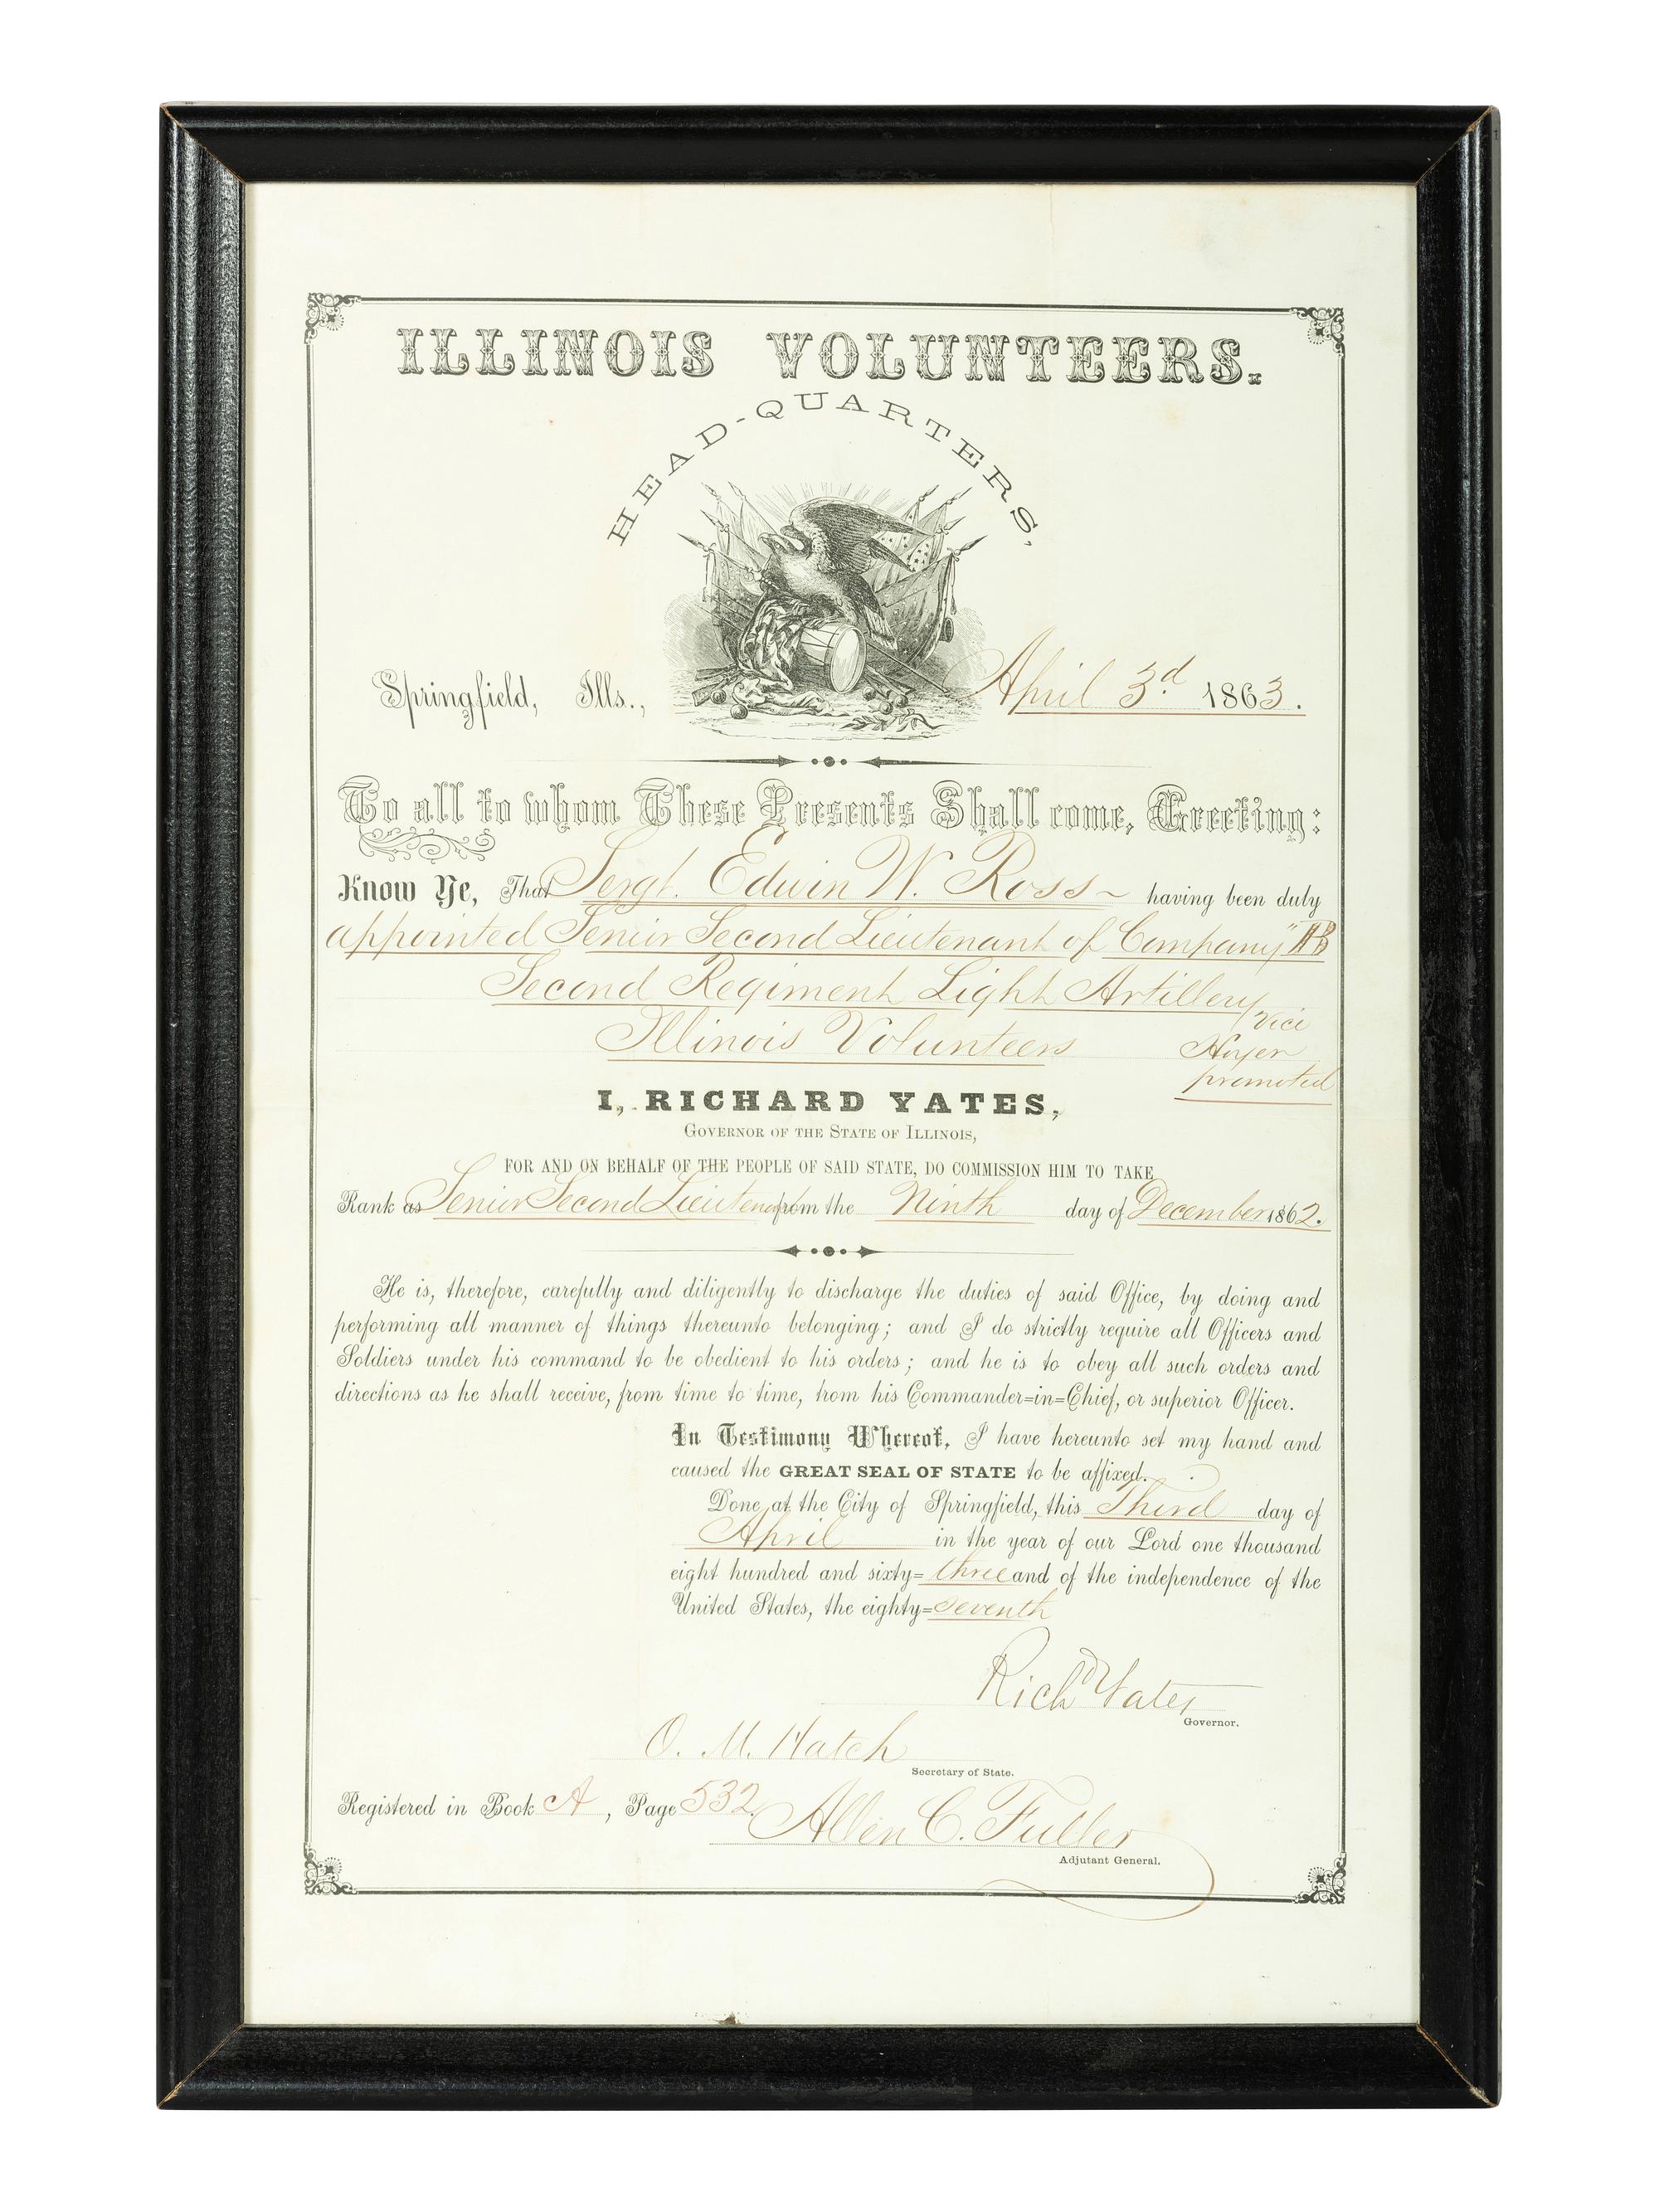 ILLINOIS VOLUNTEERS.
HEAD-QUARTERS,
Springfield, Ills., April 3d 1863.
To all to whom These Presents Shall come, Greeting:
Know Ye, That Sergt. Edwin W. Ross having been duly
appointed Senior Second Lieutenant of Company
Second Regiment Light Artillery
Vice
Illinois Volunteers
promoted
I, RICHARD YATES,
GOVERNOR OF THE STATE OF ILLINOIS,
FOR AND ON BEHALF OF THE PEOPLE OF SAID STATE, DO COMMISSION HIM TO TAKE
Rank as Senior Second Lieutenant from the Ninth day of December 1862.
He is, therefore, carefully and diligently to discharge the duties of said Office, by doing and
performing all manner of things thereunto belonging; and I do strictly require all Officers and
Soldiers under his command to be obedient to his orders; and he is to obey all such orders and
directions as he shall receive, from time to time, from his Commander=in=Chief, or superior Officer.
In Testimony Whereof, I have hereunto set my hand and
caused the GREAT SEAL OF STATE to be affixed.
Done at the City of Springfield, this Third day of
April in the year of our Lord one thousand
eight hundred and sixty=three and of the independence of the
United States, the eighty=seventh
Richd Yates
Governor.
O. M. Hatch
Secretary of State.
Registered in Book A, Page 532.
Allen C. Fuller
Adjutant General.